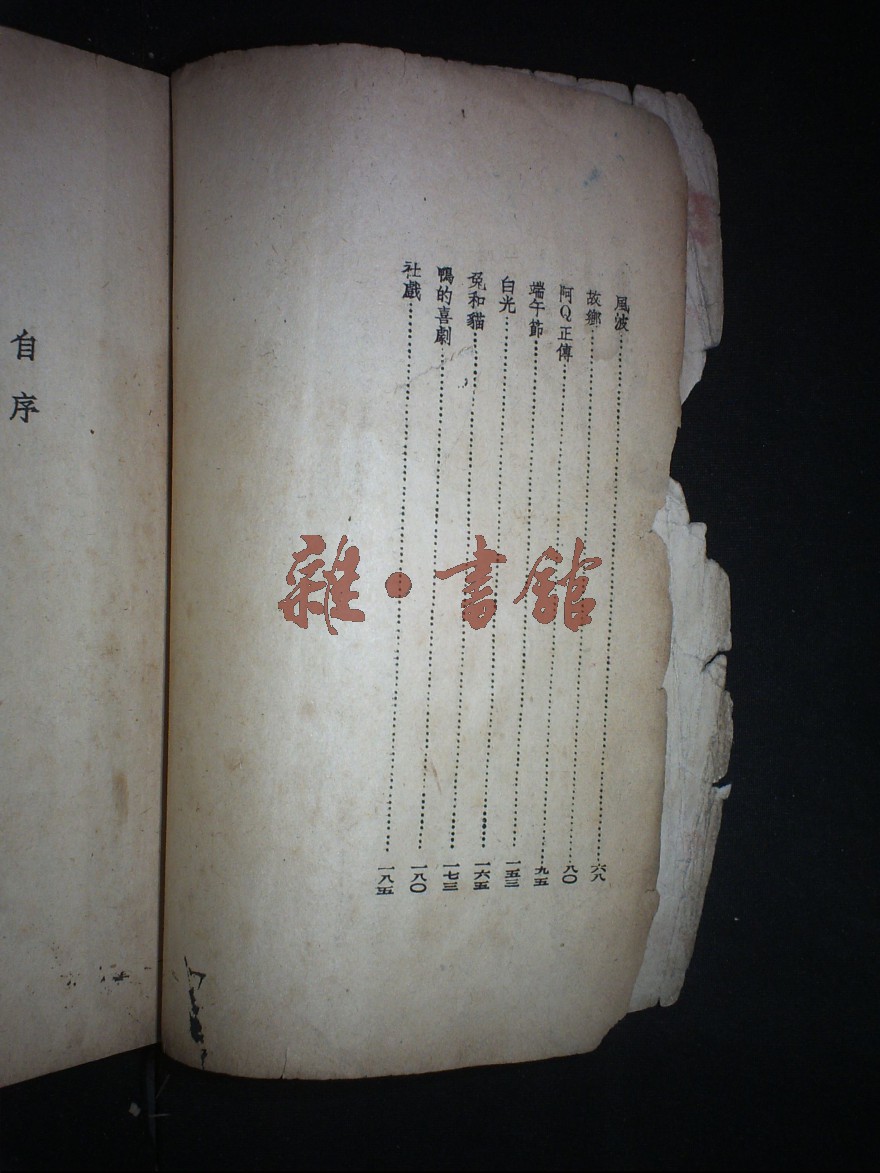 風波⋯⋯六八
故鄉⋯⋯八〇
阿Q正傳⋯⋯九五
端午節⋯⋯一五三
白光⋯⋯一六五
兔和貓⋯⋯一七三
鴨的喜劇⋯⋯一八〇
社戲⋯⋯一八五
自序
雜·書館